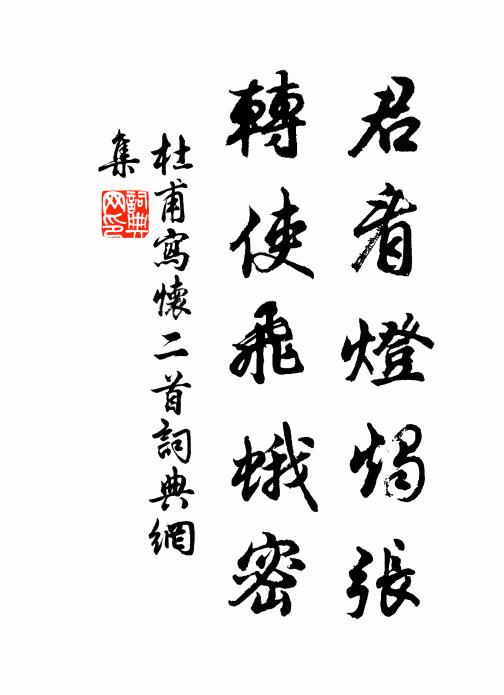 君看燈燭張
轉使飛蛾密
杜甫寫懷二首詞典網
集
詞典
网印